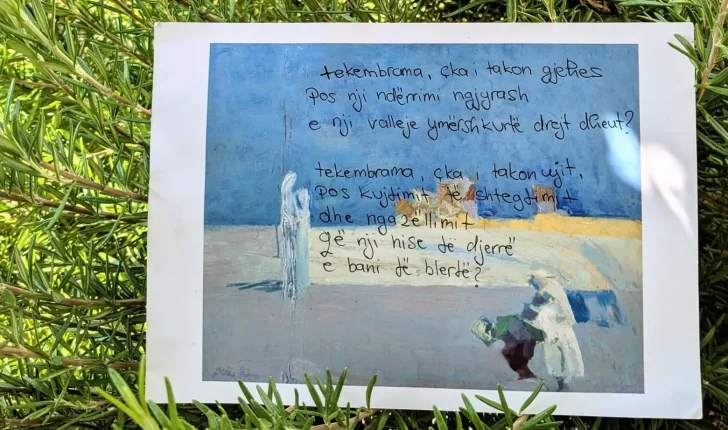 tekembrama, çka i takon gjethes
pos nji ndërrimi ngjyrash
e nji valleje ymërshkurtë drejt dheut?
tekembrama, çka i takon ujit,
pos kujtimit të shtegtimit
dhe ngazëllimit
që nji hise të djerrë
e bani të blertë?